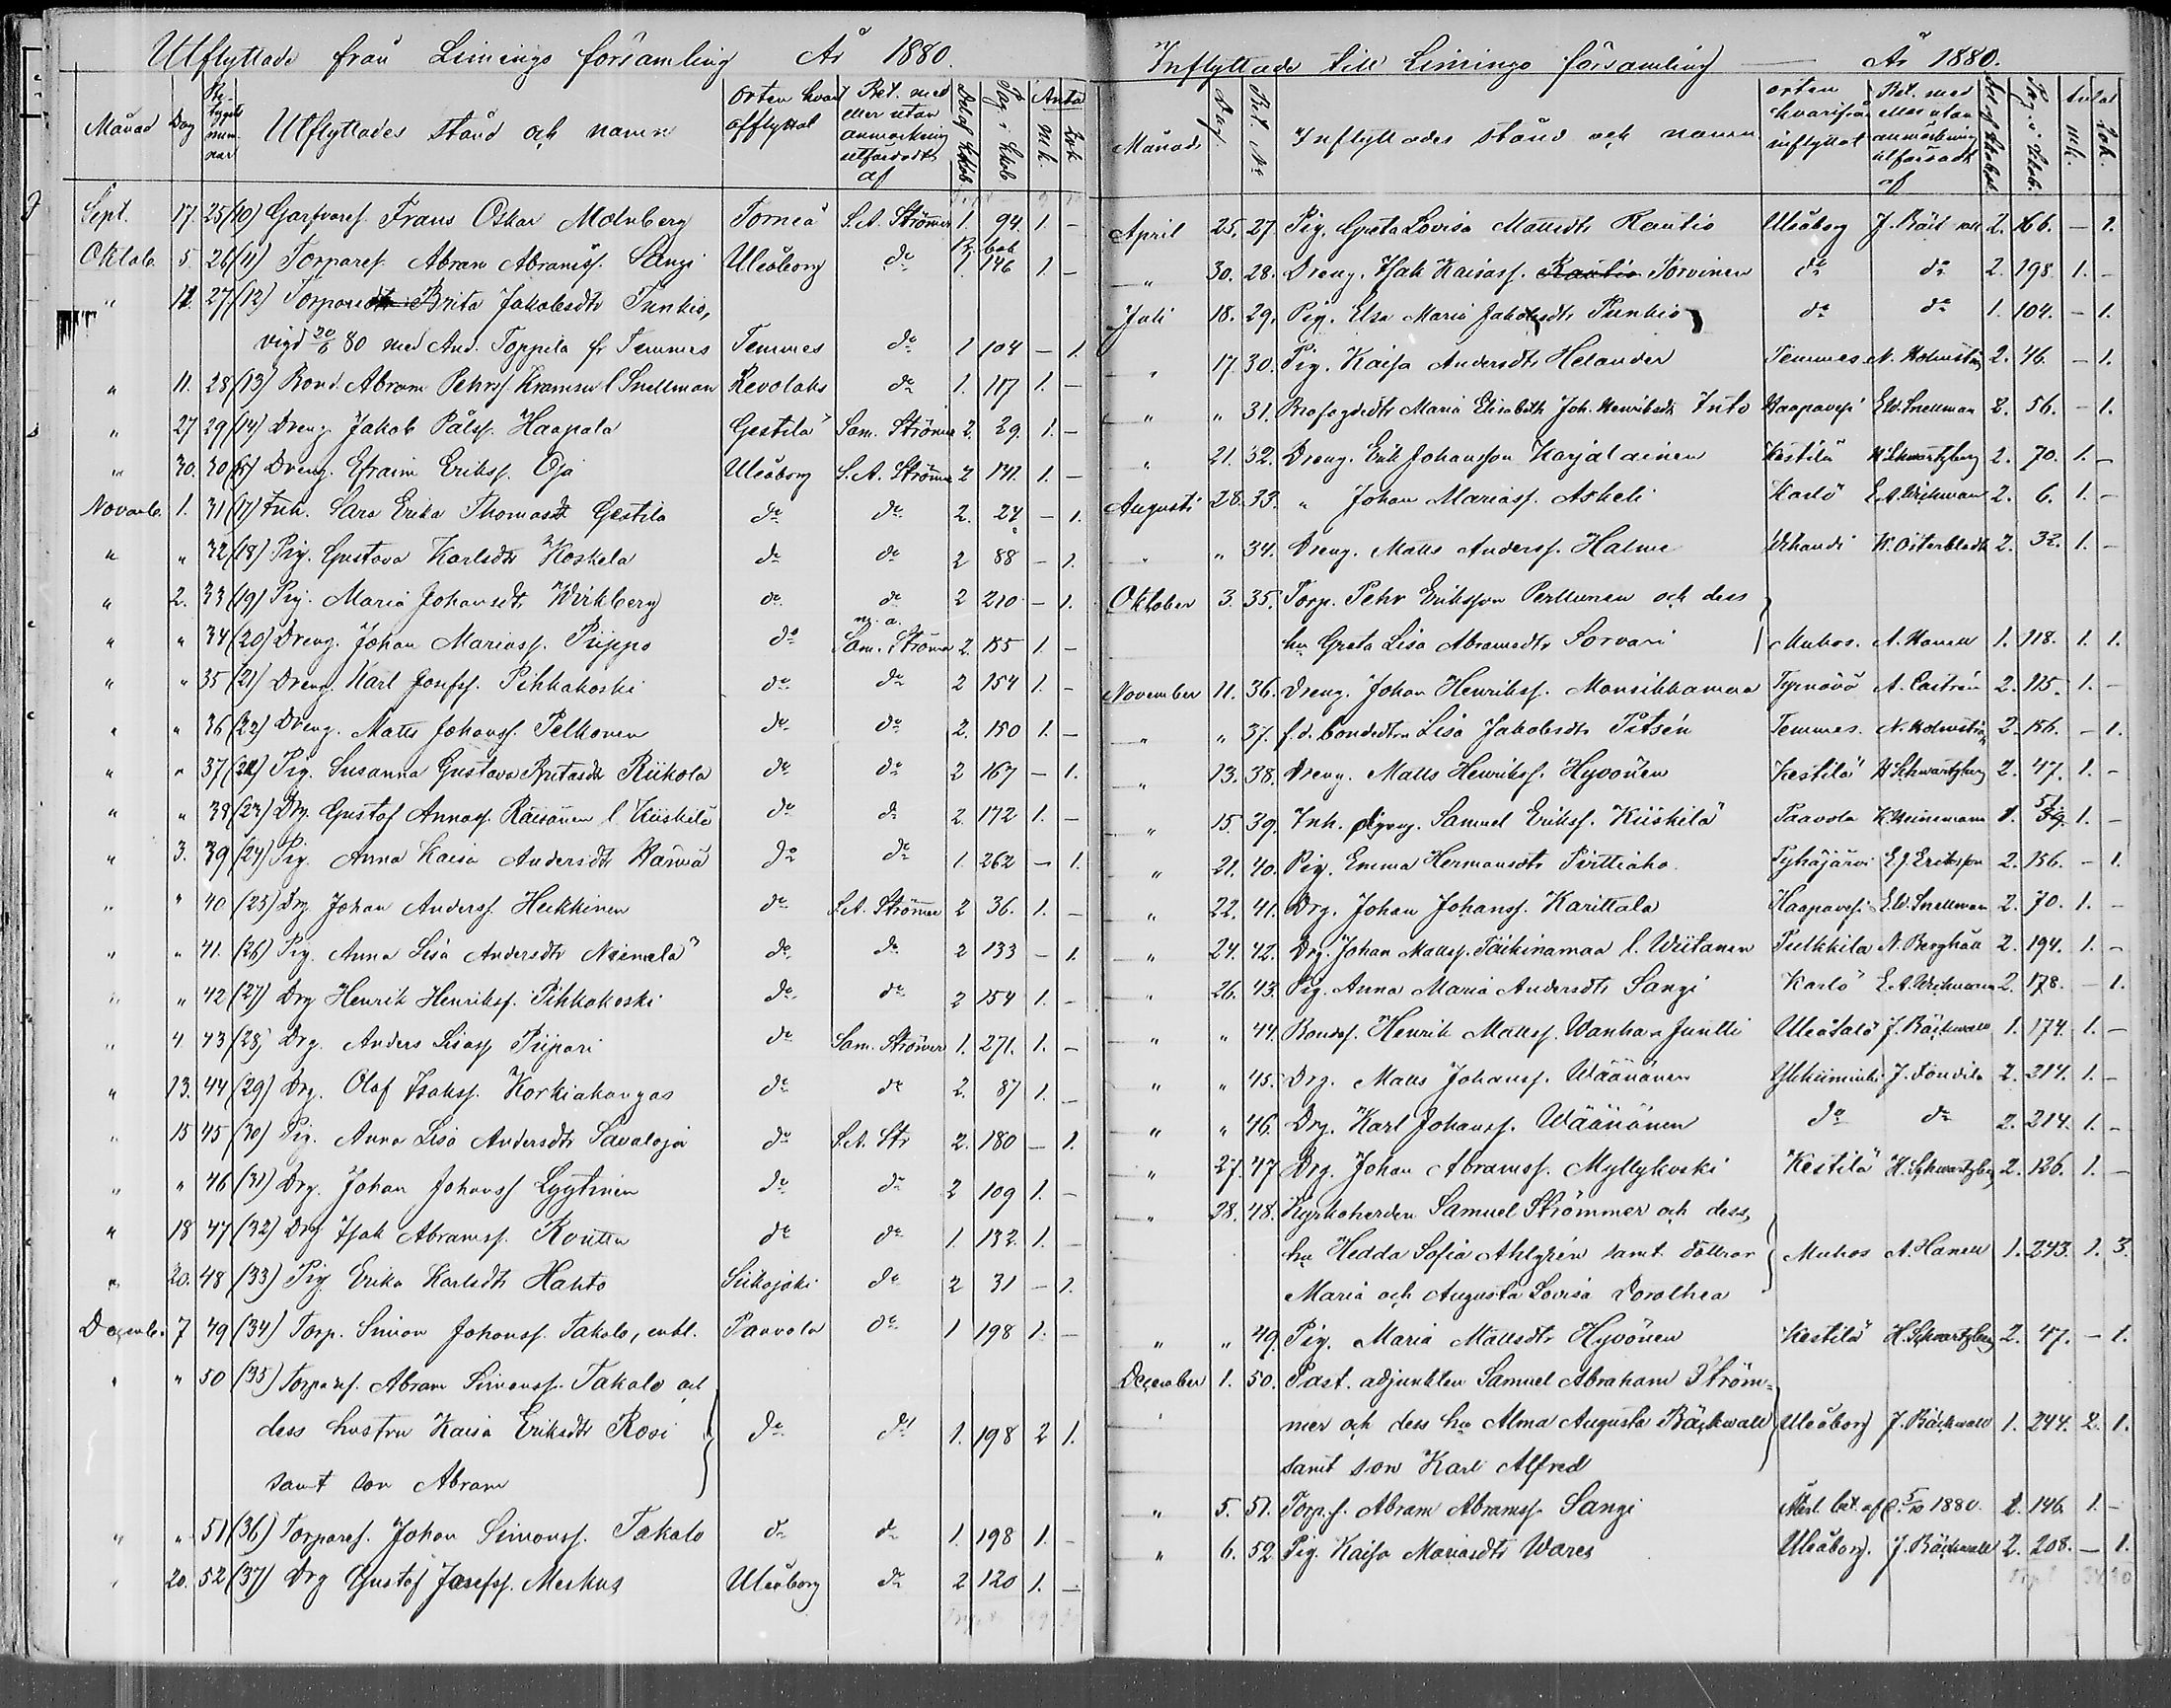 Utflyttade från Limingo församling År 1880.
Månad Dag Betygets nummer Utflyttades stånd och namn Orten hvart afflyttat Bet. med eller utan anmärkning utfärdadt af Del af Kbok. Pag. i Kbok. Antal Mk. Qvk.
Sept. 17. 25 (10) Garfvaref. Frans Oskar Molnberg Torneå S. A. Strömmer 1. 94. 1. -
Oktob. 5. 26 (11) Torparef. Abram Abramss. Sangi Uleåborg do 1. 146 1. -
" 11. 27 (12) Torparedtr Brita Jakobsdtr Tunkio,
vigd 20/6 80 med And. Toppila fr Temmes Temmes do 1 104 - 1.
" 11. 28 (13) Bond. Abram Pehrss. Kramsu l. Snellman Revolaks do 1. 117 1. -
" 27 29 (14) Dreng. Jakob Pålss. Haapala Gestilä Sam. Strömmer 2. 29. 1. -
" 30. 30 (15) Dreng. Efraim Erikss. Oja Uleåborg S. A. Strömmer 2 171. 1. -
Novemb. 1. 31 (17) Inh. Sara Erika Thomasdt Gestilä do do 2. 24 - 1.
" " 32 (18) Pig. Gustava Karlsdtr Koskela do do 2 88 - 1.
" 2. 33 (19) Pig. Maria Johansdtr Wirkberg do do 2 210 - 1.
" " 34 (20) Dreng. Johan Mariass. Piippo do Sam. Strömmer 2. 155 1. -
" " 35 (21) Dreng. Karl Josefss. Pihkakoski do do 2 154 1. -
" " 36 (22) Dreng. Matts Johanss. Pelkonen do do 2. 150 1. -
" " 37 (22) Pig. Susanna Gustava Britasdtr Riikola do do 2 167 - 1.
" " 38 (23) Drg. Gustaf Annass. Räisänen l. Kiiskilä do do 2. 172 1. -
" 3. 39 (24) Pig. Anna Kaisa Andersdtr do do 1. 262 - 1.
" " 40 (25) Drg. Johan Anderss. Heikkinen do S. A. Strömmer 2 36. 1. -
" " 41. (26) Pig. Anna Lisa Andersdtr Niemelä do do 2 133 - 1.
" " 42 (27) Drg Henrik Henrikss. Pihkakoski do do 2 154 1. -
" 4 43 (28) Drg. Anders Lisass Piipari do Sam. Strömmer 1. 271. 1. -
" 13. 44 (29) Drg. Olof Isakss. Korkiakangas do do 2. 87 1. -
" 15 45 (30) Pig. Anna Lisa Andersdtr Savaloja do S. A. Str 2. 180 - 1.
" " 46 (31) Drg. Johan Johanss Lyytinen do do 2 109 1. -
" 18 47 (32) Drg Isak Abramss. Routtu do do 1. 132. 1. -
" 20. 48 (33) Pig Erika Karlsdtr Hahto Siikajoki do 2 31 - 1.
Decemb. 7 49 (34) Torp. Simon Johanss. Takalo, enkl. Paavola do 1 198 1. -
" " 50 (35) Torparef. Abram Simonss. Takalo och
dess hustru Kaisa Eriksdtr Rosi do do 1. 198 2 1.
samt son Abram
" " 51 (36) Torparef. Johan Simonss. Takalo do do 1. 198 1. -
" 20. 52 (37) Drg Gustaf Josefss. Merkus Uleåborg do 2 120 1. -
Inflyttade till Limingo församling År 1880.
Månad Dag. Bet. No Inflyttades stånd och namn orten hvarifrån inflyttat Bet. med eller utan anmärkning utfärdadt af Del af Kbok. Pag. i Kbok. Antal Mk. Qvk.
April 25. 27. Pig. Greta Lovisa Mattsdtr Rautio Uleåborg J. Bäckwall 2. 166. - 1.
" 30. 28. Dreng. Isak Kaisass. Rautio Torvinen do do 2. 198. 1. -
Juli 18. 29. Pig. Elsa Maria Jakobsdtr Tunkio do do 1. 104. - 1.
" 17. 30. Pig. Kaisa Andersdtr Helander Temmes N. Holmström 2. 46. - 1.
" " 31. Brofogdedtr Maria Elisabeth Joh. Henriksdtr Into Haapavesi E. W. Snellman 2. 56. - 1.
" 21. 32. Dreng. Erik Johansson Karjalainen Kestilä H. Schwartzberg 2. 70. 1. -
Augusti 28. 33. " Johan Mariass. Askeli Karlö E. A. Wichmann 2. 6. 1. -
" " 34. Dreng. Matts Anderss. Halme K. Österbladh 2. 32. 1. -
Oktober 3. 35. Torp. Pehr Eriksson Perttunen och dess
hu Greta Lisa Abramsdtr Sorvari Muhos. A. Hanell 1. 118. 1. 1.
November 11. 36. Dreng. Johan Henrikss. Mansikkamaa Tyrnävä A. Castrén 2. 115. 1. -
" " 37. f. d. bondedtrn Lisa Jakobsdtr Pitsén Temmes. N. Holmström 2. 156. - 1.
" 13. 38. Dreng. Matts Henrikss. Hyvönen Kestilä H. Schwartzberg 2. 47. 1. -
" 15. 39. Inh. Samuel Erikss. Kiiskilä Paavola K. Heinemann 1. 51 1. -
" 21. 40. Pig. Emma Hermansdtr Pirttiaho Pyhäjärvi E. J. Eriksson 2. 156. - 1.
" 22. 41. Drg. Johan Johanss. Karittala Haapavesi E. W. Snellman 2. 70. 1. -
" 24. 42. Drg. Johan Mattss. Täikinamaa l. Wiitanen Pulkkila N. Berghäll 2. 194. 1. -
" 26. 43. Pig. Anna Maria Andersdtr Sangi Karlö E. A. Wichmann 2. 178. - 1.
" " 44. Bondes. Henrik Mattss. Wanha-Juntti Uleåsalo J. Bäckwall 1. 174. 1. -
" " 45. Drg. Matts Johanss. Wäänänen Ylikiiminki J. 2. 214. 1. -
" " 46. Drg. Karl Johanss. Wäänänen do do 2. 214. 1. -
" 27. 47. Drg. Johan Abramss. Myllykoski Kestilä H. Schwartzberg 2. 126. 1. -
" 28. 48. Kyrkoherden Samuel Strömmer och dess
hu Hedda Sofia Ahlgrén samt döttrar Muhos A. Hanell 1. 243. 1. 3.
Maria och Augusta Lovisa Dorothea
" " 49. Pig. Maria Mattsdtr Hyvönen Kestilä H. Schwartzberg 2. 47. - 1.
December 1. 50. Past. adjunkten Samuel Abraham Ström-
mer och dess hu Alma Augusta Bäckwall Uleåborg J. Bäckwall 1. 244. 2. 1.
samt son Karl Alfred
" 5. 51. Torp.s. Abram Abramss. Sangi Återl. bet. af d. 5/10 1880. 1. 146. 1. -
" 6. 52. Pig. Kaisa Mariasdtr Wares Uleåborg. J. Bäckwall 2. 208. - 1.